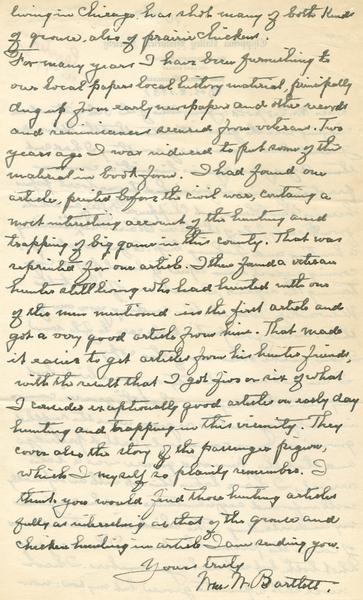 living in Chicago, has shot many of both kinds
of grouse, also of prairie chickens.
For many years I have been furnishing to
our local papers local history material, principally
dug up from early newspapers and other records
and reminiscences secured from veterans. Two
years ago I was induced to put some of the
material in book form. I had found one
article, printed before the civil war, containg a
most interesting account of the hunting and
trapping of big game in this county. That was
reprinted for one article. I then found a veteran
hunter still living who had hunted with one
of the men mentioned in the first article and
got a very good article from him. That made
it easier to get articles from his hunter friends,
with the result that I got five or six of what
I consider exceptionally good articles on early day
hunting and trapping in this vicinity. They
cover also the story of the passenger pigeon,
which I myself so plainly remember. I
think you would find those hunting articles
fully as interesting as that of the grouse and
chicken hunting in article I am sending you.
Yours truly
Wm. W. Bartlett.